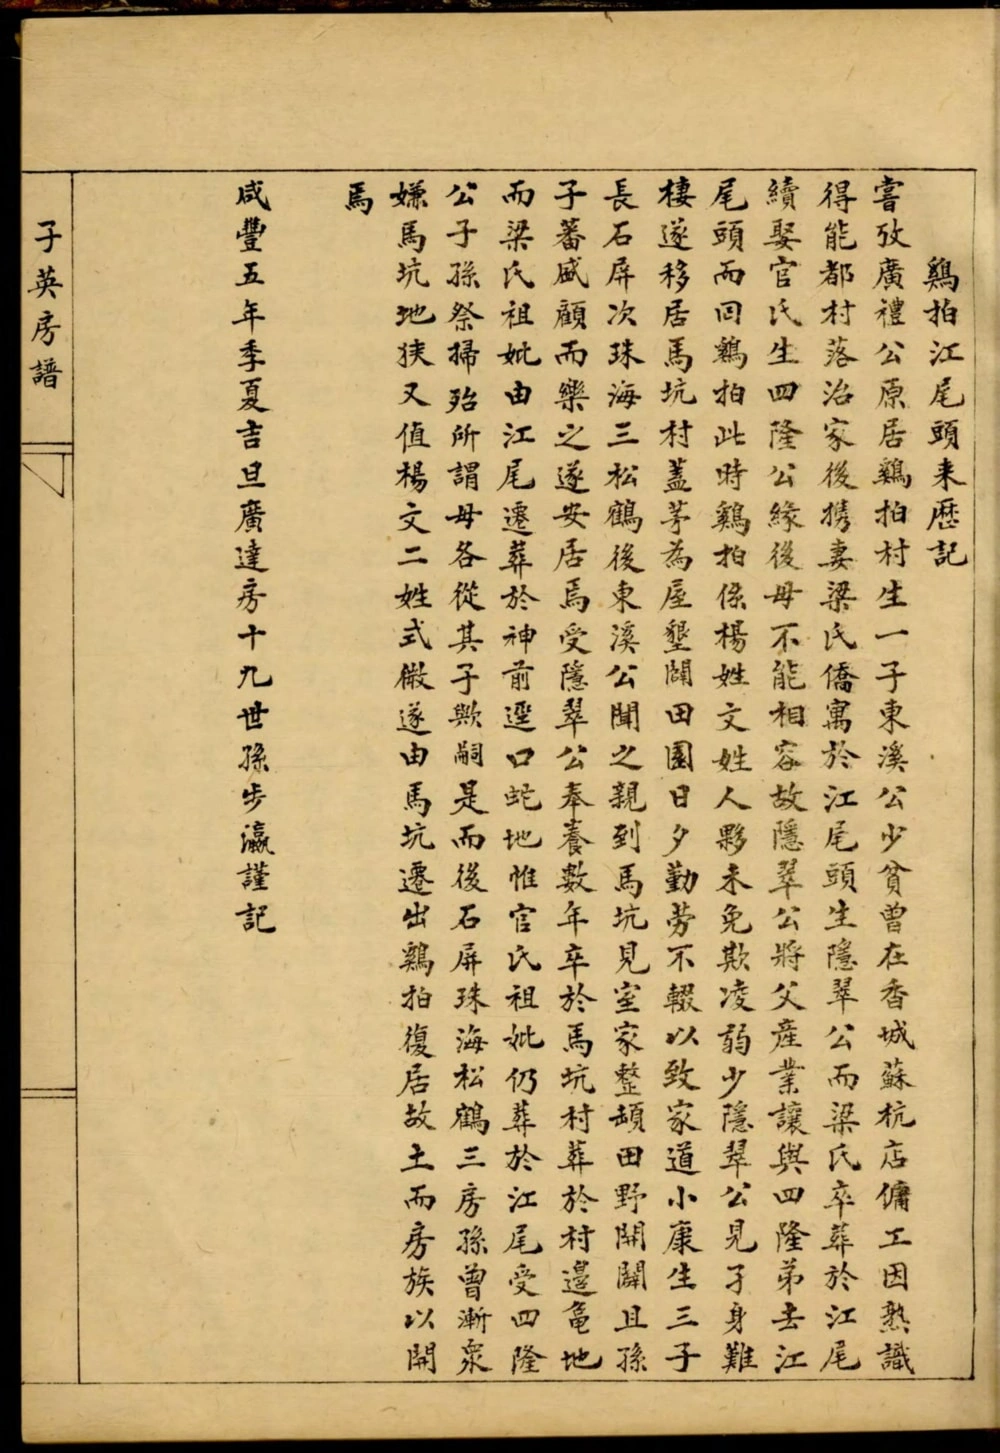 鷄拍江尾頭来歷記
嘗攷廣禮公原居鷄拍村生一子東溪公少貧曾在香城蘇杭店傭工因熟識
得能都村落治家後携妻梁氏僑寓於江尾頭生隱翠公而梁氏卒葬於江尾
續娶官氏生四隆公緣後母不能相容故隱翠公將父產業讓與四隆弟去江
尾頭而回鷄拍此時鷄拍係楊姓文姓人夥未免欺凌弱少隱翠公見孑身難
棲遂移居馬坑村蓋茅為屋墾闢田園日夕勤劳不輟以致家道小康生三子
長石屏次珠海三松鶴後東溪公聞之親到馬坑見室家整頓田野開闢且孫
子蕃盛顧而樂之遂安居焉受隱翠公奉養數年卒於馬坑村葬於村邊黽地
而梁氏祖妣由江尾遷葬於神前逕口蛇地惟官氏祖妣仍葬於江尾受四隆
公子孫祭掃殆所謂母各從其子歟嗣是而後石屏珠海松鶴三房孫曾漸衆
嫌馬坑地狹又值楊文二姓式微遂由馬坑遷出鷄拍復居故土而房族以開
焉
咸豐五年季夏吉旦廣達房十九世孫步瀛謹記
子英房譜